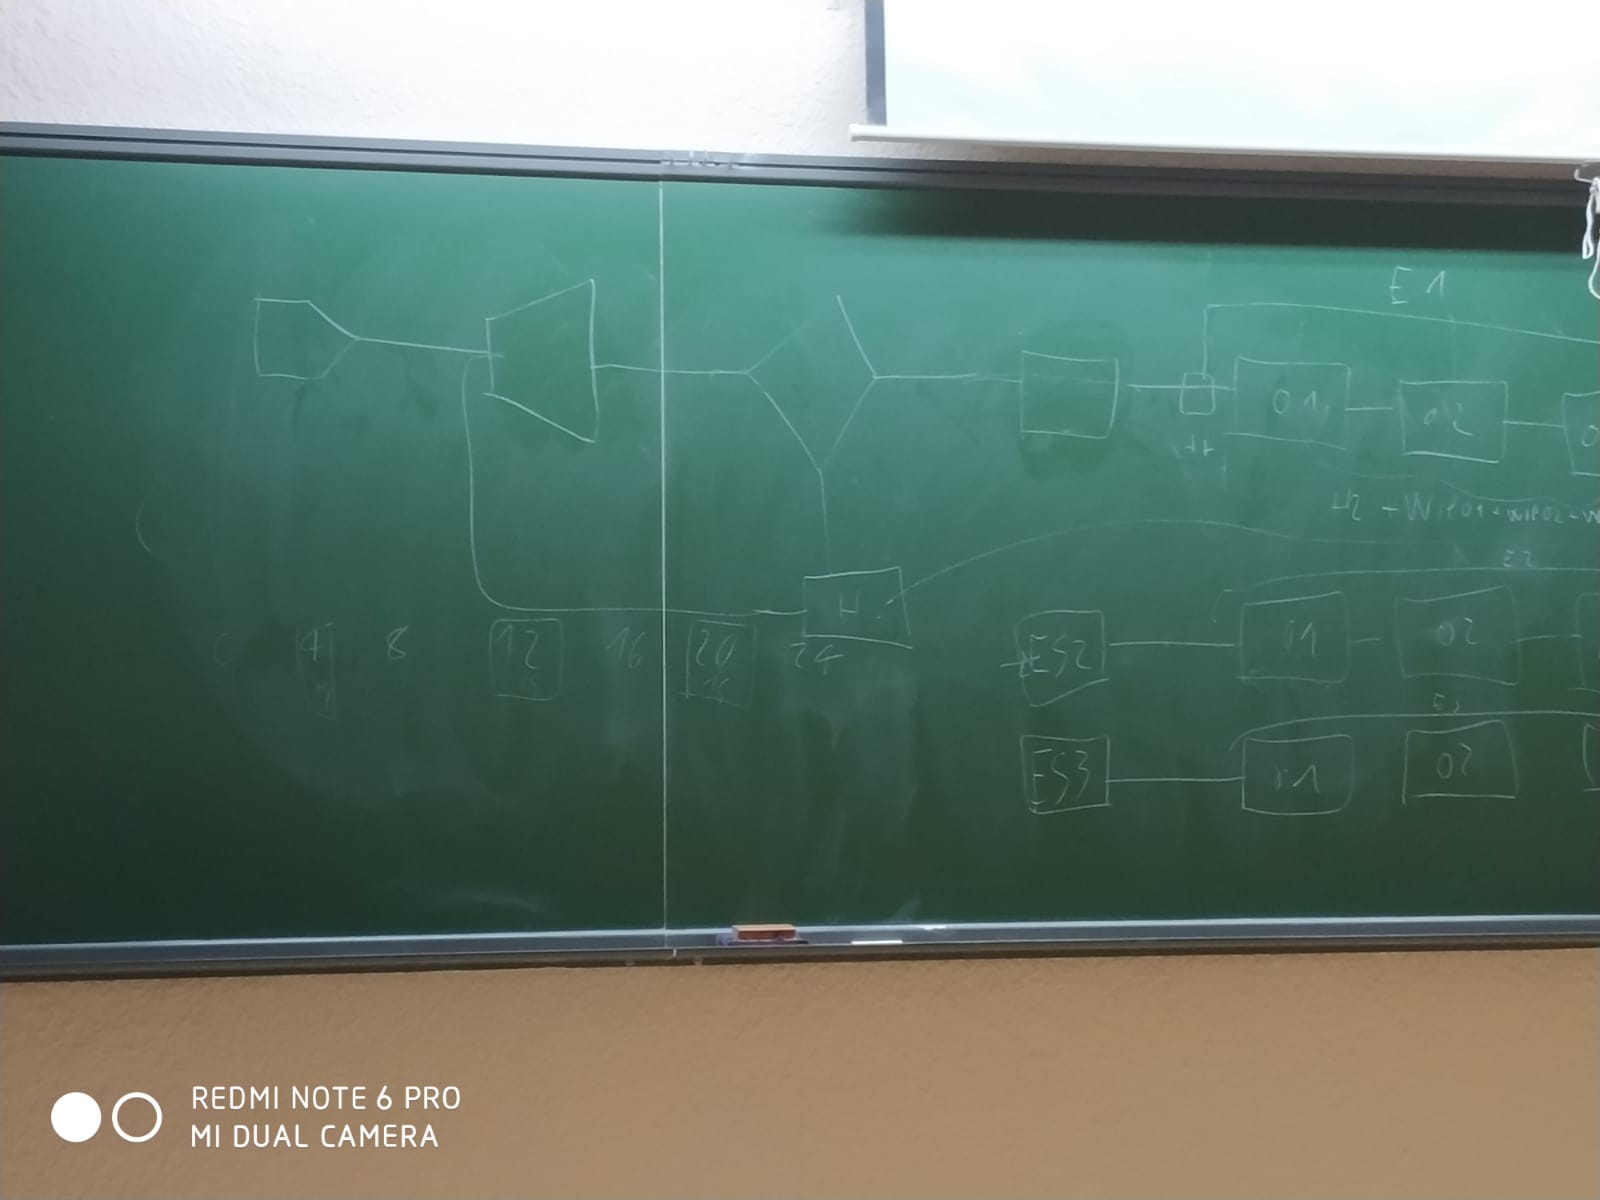 E1
01
02
H2 + WIP01 + WIP02 +
E2
H
4 8 12 16 20 24
ES2
01
02
E3
ES3
01
02
REDMI NOTE 6 PRO
MI DUAL CAMERA